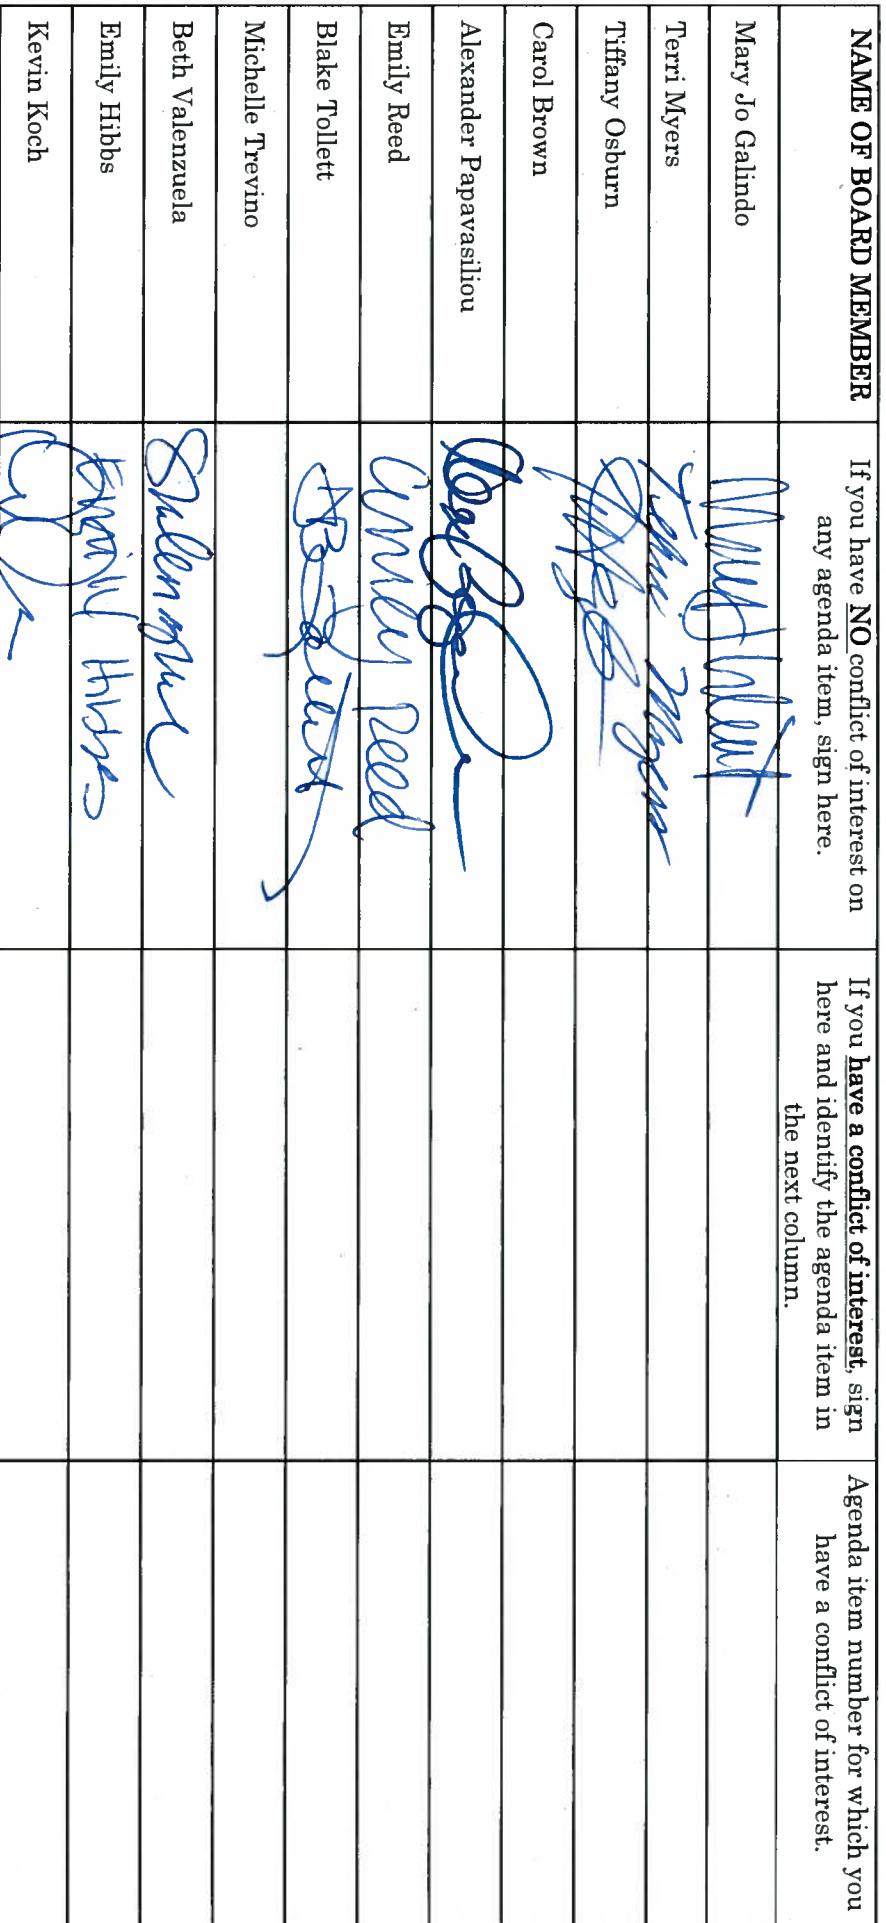 NAME OF BOARD MEMBER
If you have NO conflict of interest on
any agenda item, sign here.
If you have a conflict of interest, sign
here and identify the agenda item in
the next column.
Agenda item number for which you
have a conflict of interest.
Mary Jo Galindo
Terri Myers
Terri Myers
Tiffany Osburn
Carol Brown
Alexander Papavasiliou
Emily Reed
Emily Reed
Blake Tollett
Michelle Trevino
Beth Valenzuela
Emily Hibbs
Emily Hibbs
Kevin Koch